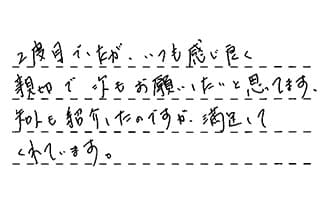 2度目でしたが、いつも感じ良く
親切で 次もお願いしたいと思ってます。
知人も紹介したのですが、満足して
くれています。